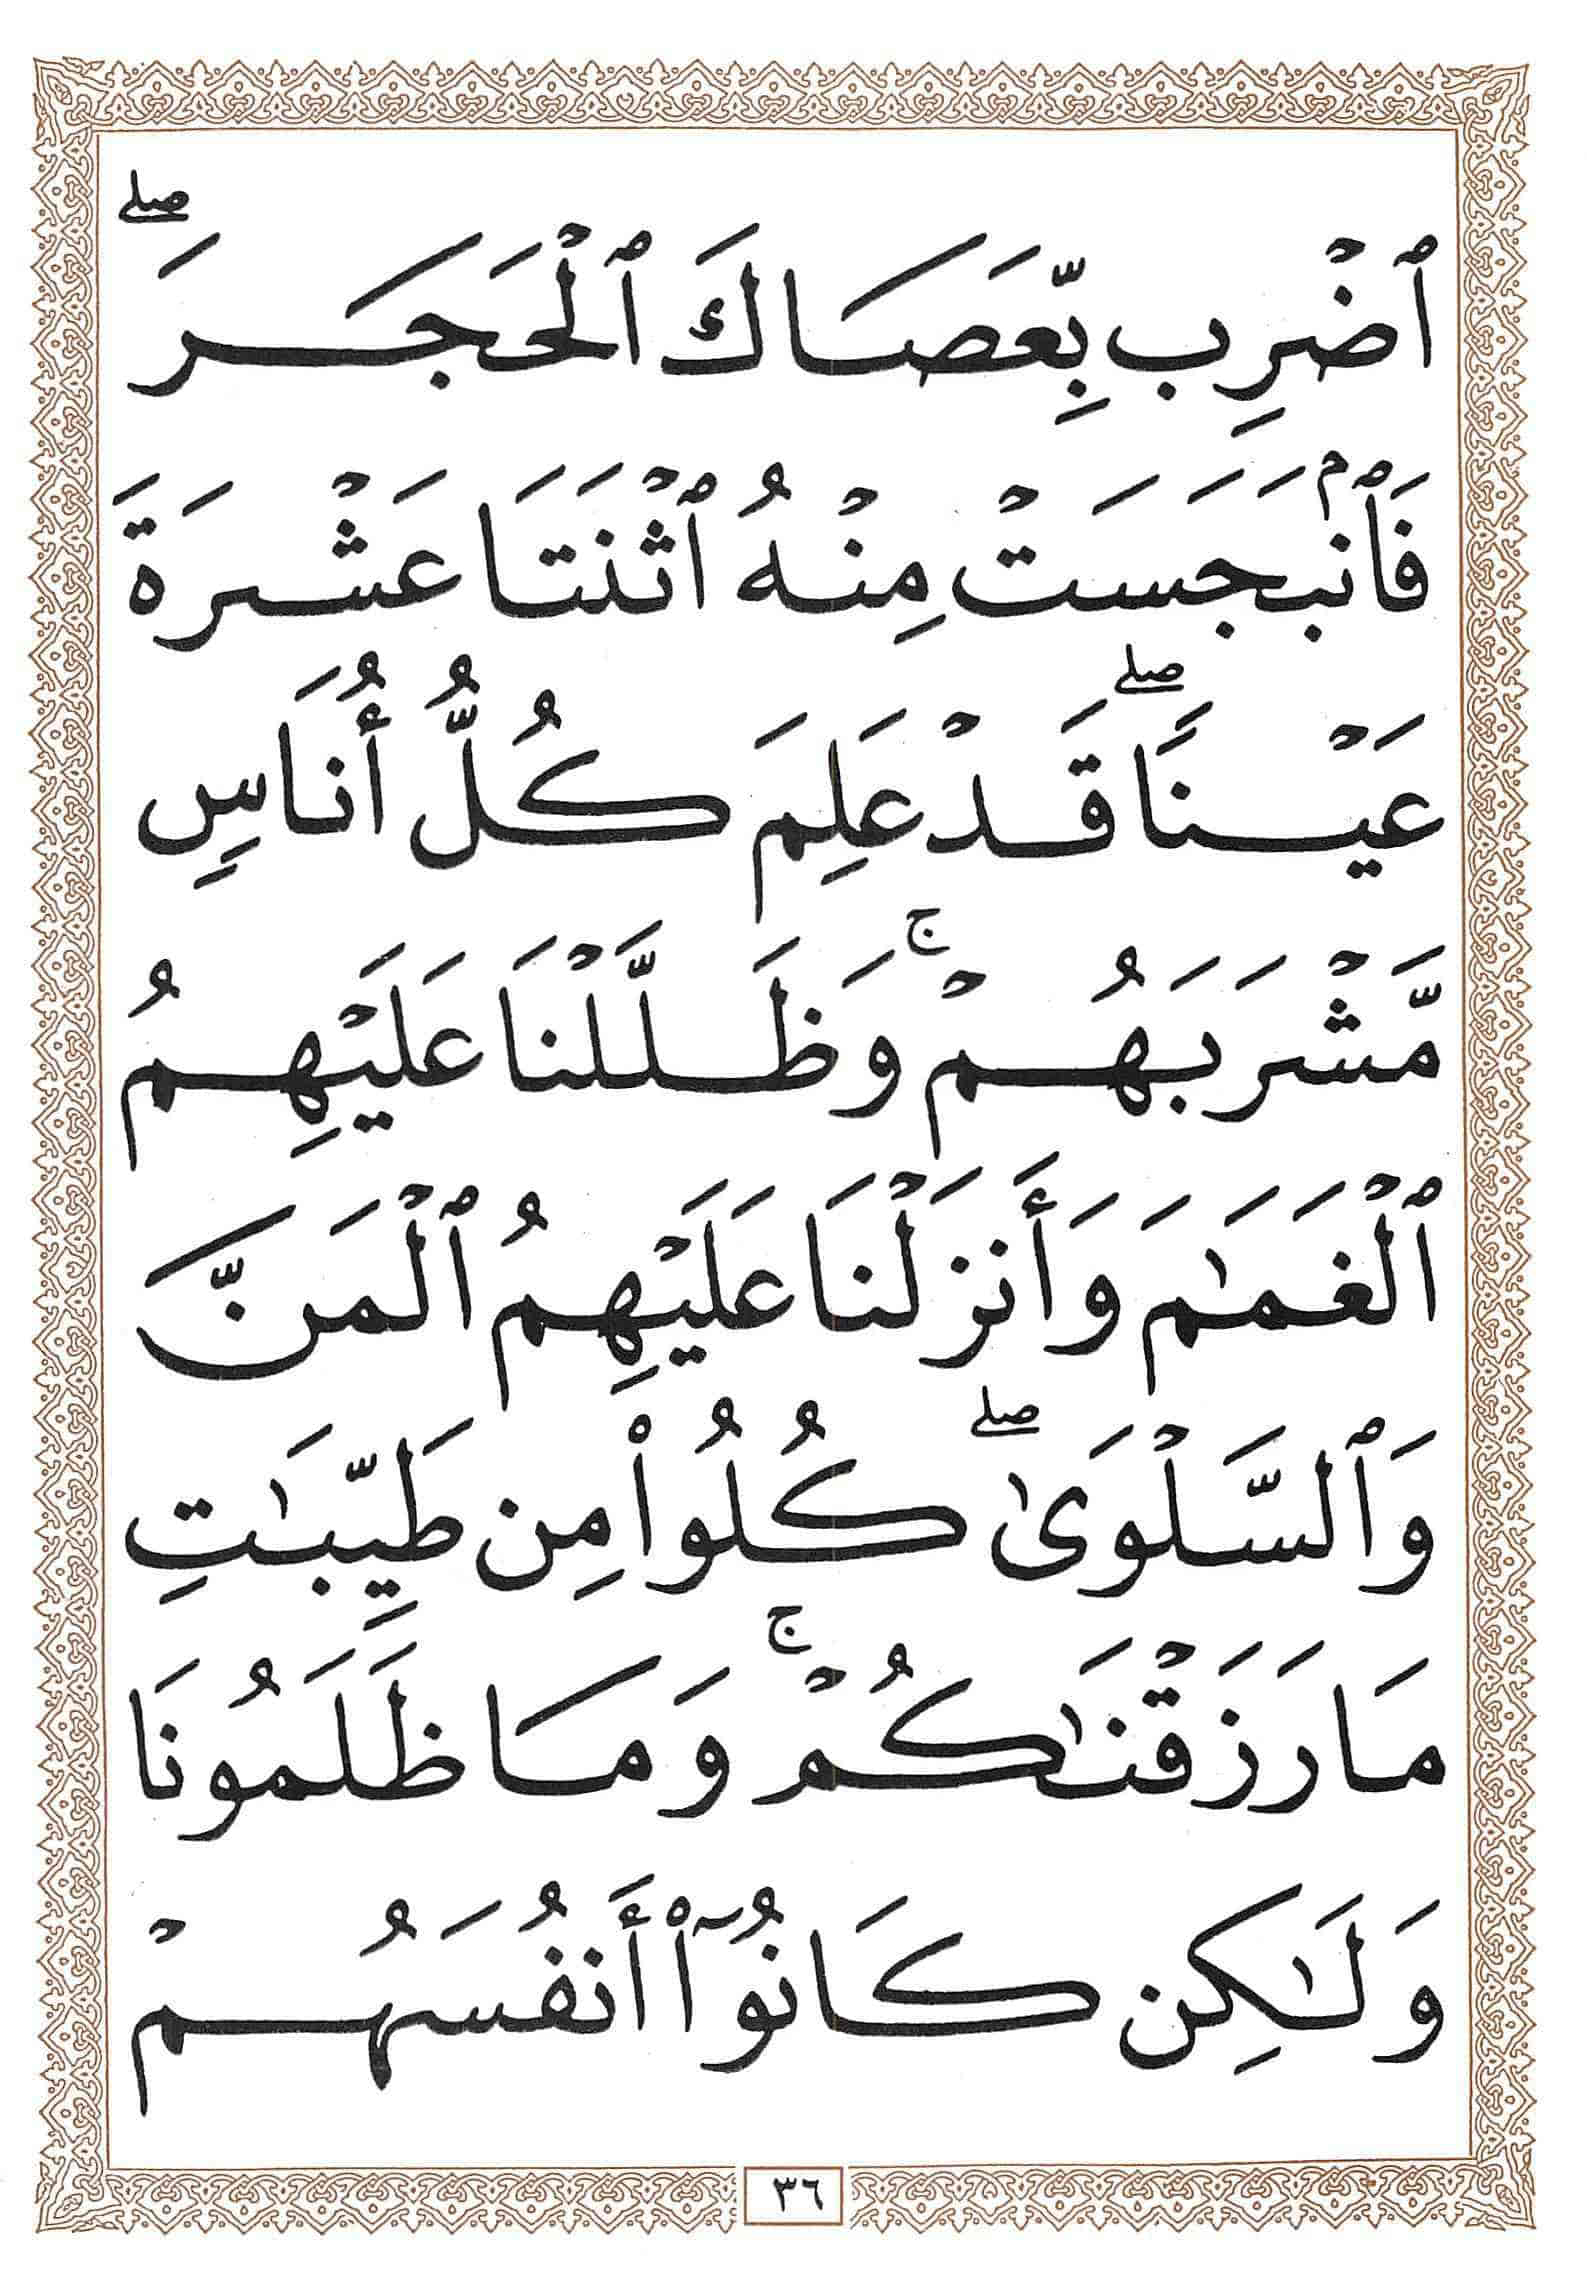 ٱضْرِب بِّعَصَاكَ ٱلْحَجَرَ ۖ
فَٱنۢبَجَسَتْ مِنْهُ ٱثْنَتَا عَشْرَةَ
عَيْنًا ۖ قَدْ عَلِمَ كُلُّ أُنَاسٍ
مَّشْرَبَهُمْ ۚ وَظَلَّلْنَا عَلَيْهِمُ
ٱلْغَمَـٰمَ وَأَنزَلْنَا عَلَيْهِمُ ٱلْمَنَّ
وَٱلسَّلْوَىٰ ۖ كُلُوا۟ مِن طَيِّبَـٰتِ
مَا رَزَقْنَـٰكُمْ ۚ وَمَا ظَلَمُونَا
وَلَـٰكِن كَانُوٓا۟ أَنفُسَهُمْ
٣٦